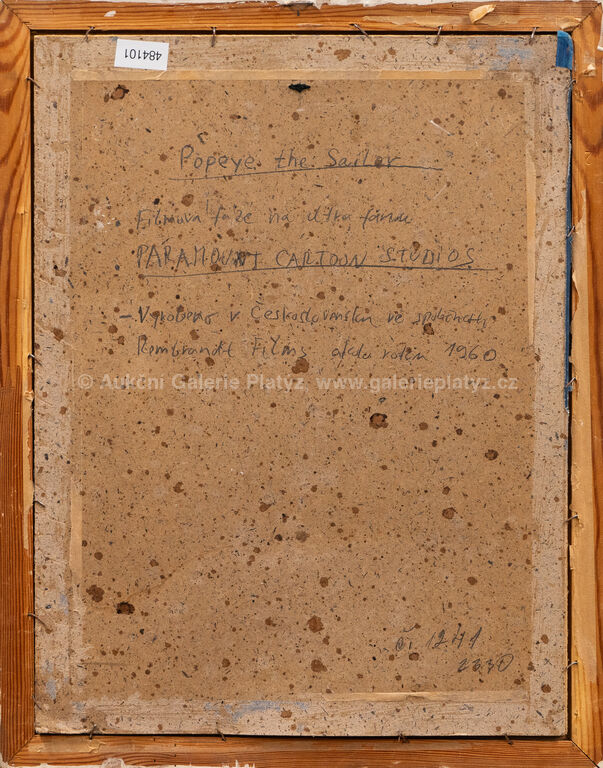 484101
Popeye the Sailor
Filmová fáze na ultra fánu
PARAMOUNT CARTOON STUDIOS
- Vyrobeno v Československu ve společnosti
Rembrandt Films okolo roku 1960
© Aukční Galerie Platýz, www.galerieplatyz.cz
1241
2330